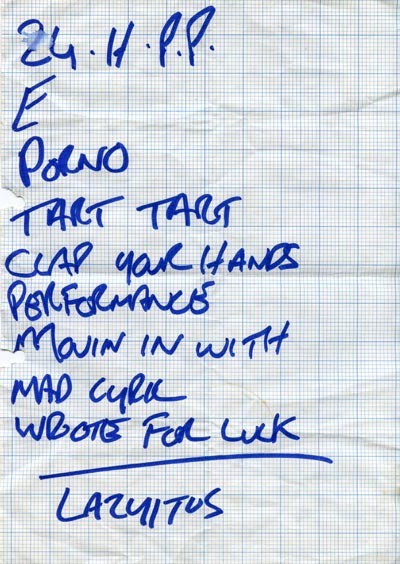 24.H.P.P.
E
PORNO
TART TART
CLAP YOUR HANDS
PERFORMANCE
MOVIN IN WITH
MAD CYRIL
WROTE FOR LUCK
LAZYITUS